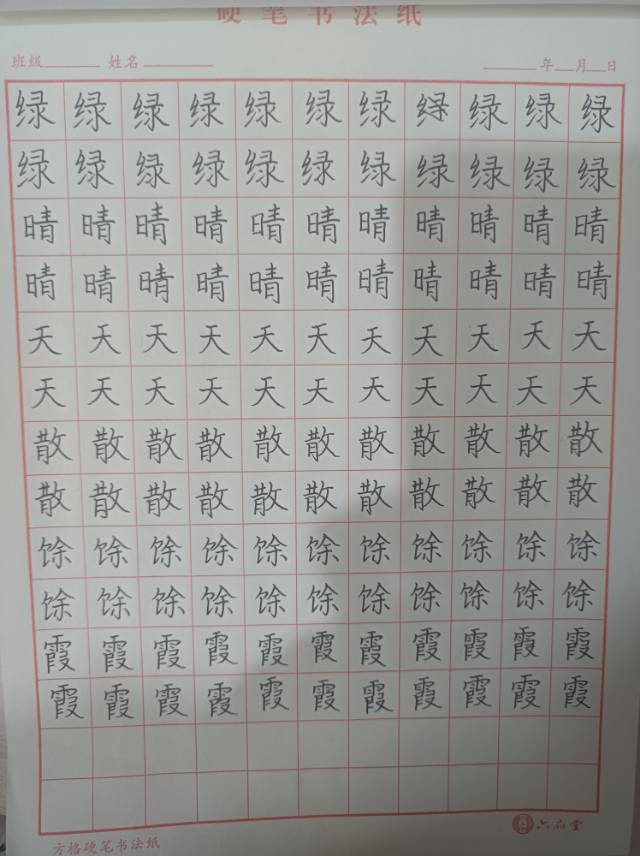 硬笔书法纸
班级 姓名 年 月 日
绿绿绿绿绿绿绿绿绿绿绿
绿绿绿绿绿绿绿绿绿绿绿
晴晴晴晴晴晴晴晴晴晴晴
晴晴晴晴晴晴晴晴晴晴晴
天天天天天天天天天天天
天天天天天天天天天天天
散散散散散散散散散散散
散散散散散散散散散散散
馀馀馀馀馀馀馀馀馀馀馀
馀馀馀馀馀馀馀馀馀馀馀
霞霞霞霞霞霞霞霞霞霞霞
霞霞霞霞霞霞霞霞霞霞霞
方格硬笔书法纸 六品堂